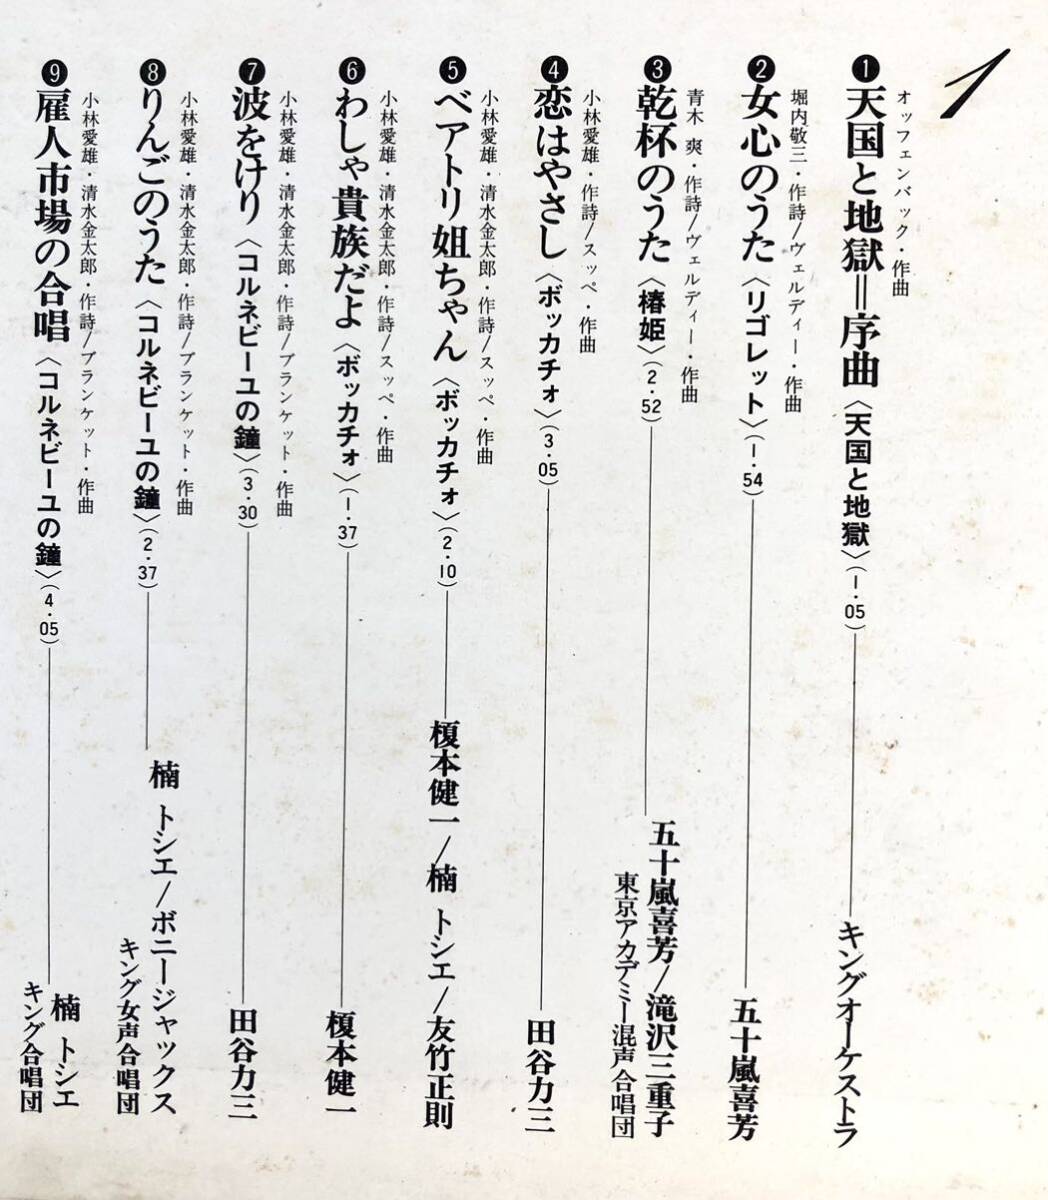 1
オッフェンバック・作曲
❶天国と地獄＝序曲〈天国と地獄〉(1・05)
キングオーケストラ
堀内敬三・作詩/ヴェルディー・作曲
❷女心のうた〈リゴレット〉(1・54)
五十嵐喜芳
青木 爽・作詩/ヴェルディー・作曲
❸乾杯のうた〈椿姫〉(2・52)
五十嵐喜芳/滝沢三重子
東京アカデミー混声合唱団
小林愛雄・作詩/スッペ・作曲
❹恋はやさし〈ボッカチォ〉(3・05)
田谷力三
小林愛雄・清水金太郎・作詩/スッペ・作曲
❺ベアトリ姐ちゃん〈ボッカチォ〉(2・10)
榎本健一/楠 トシエ/友竹正則
小林愛雄・清水金太郎・作詩/スッペ・作曲
❻わしゃ貴族だよ〈ボッカチォ〉(1・37)
榎本健一
小林愛雄・清水金太郎・作詩/プランケット・作曲
❼波をけり〈コルネビーユの鐘〉(3・30)
田谷力三
小林愛雄・清水金太郎・作詩/プランケット・作曲
❽りんごのうた〈コルネビーユの鐘〉(2・37)
楠 トシエ/ボニージャックス
キング女声合唱団
小林愛雄・清水金太郎・作詩/プランケット・作曲
❾雇人市場の合唱〈コルネビーユの鐘〉(4・05)
楠 トシエ
キング合唱団